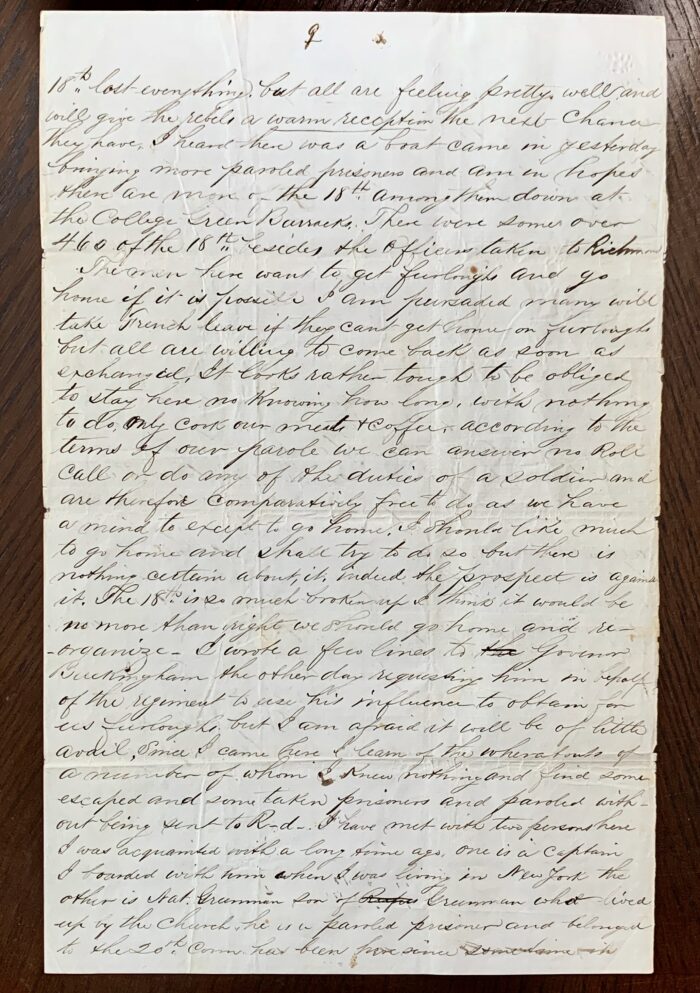 9
18th lost everything, but all are feeling pretty well and
will give the rebels a warm reception the next Chance
they have, I heard there was a boat came in yesterday
bringing more paroled prisoners and am in hopes
there are more of the 18th among them down at
the College Green Barracks. There were some over
460 of the 18th besides the Officers taken to Richmon
The men here want to get furloughs and go
home if it is possible I am pursaded many will
take French leave if they cant get home on furloughs
but all are willing to come back as soon as
exchanged, It looks rather tough to be obliged
to stay here no Knowing how long, with nothing
to do, only cook our meat & coffee, according to the
terms of our parole we can answer no Roll
Call or do any of the duties of a soldier and
are therefore comparatively free to do as we have
a mind to except to go home. I should like much
to go home and shall try to do so but there is
nothing certain about it, indeed the prospect is agains
it. The 18th is so much broken up I think it would be
no more than right we should go home and re-
-organize - I wrote a few lines to the Govenor
Buckingham the other day requesting him in behalf
of the regiment to use his influence to obtain for
us furloughs, but I am afraid it will be of little
avail, Since I came here I learn of the wherabouts of
a number of whom I Knew nothing and find some
escaped and some taken prisoners and paroled with-
out being sent to R-d-. I have met with two persons here
I was acquainted with a long time ago. one is a Captain
I boarded with him when I was living in New York the
other is Nat. Grumman son of Rufus Grumman who lived
up by the Church, he is a paroled prisoner and belonged
to the 20th Conn. has been here since some time in